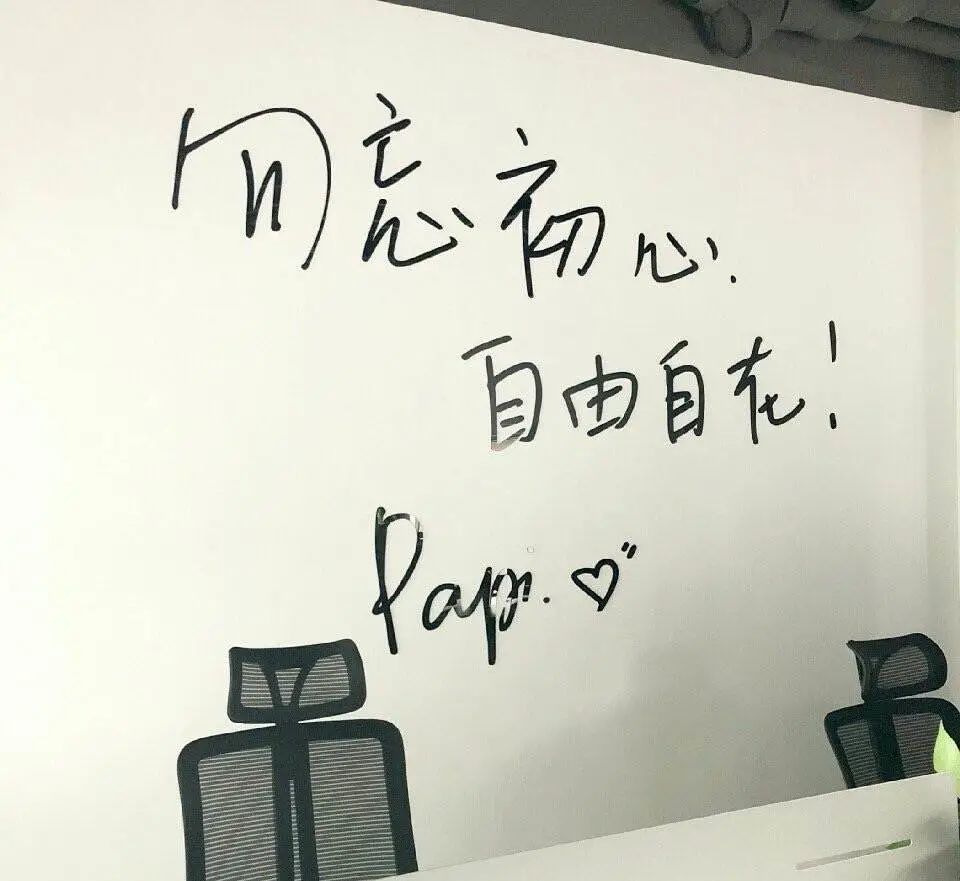 勿忘初心.
自由自在!
Papi. ♡